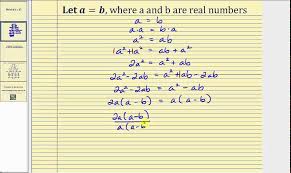 Let a = b, where a and b are real numbers
a = b
a·a = b·a
a² = ab
1a² + 1a² = ab + a²
2a² = a² + ab
2a² - 2ab = a² + 1ab - 2ab
2a² - 2ab = a² - ab
2a(a - b) = a(a - b)
2a(a-b)
a(a-b